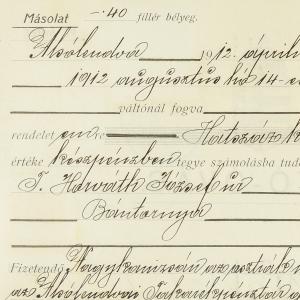 Másolat -.40 fillér bélyeg.
Alsólendva 1912. április
1912 augusztus hó 14-
váltónál fogva
rendelet Hatszáz k
értéke készpénzben tegye számolásba tud
T. Horváth József ur
Bántornya
Fizetendő Nagykanizsán az osztrák
az Alsólendvai Takarékpénztár